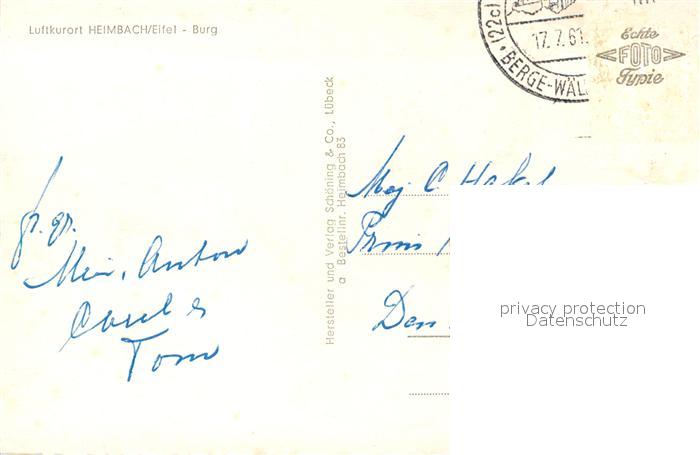 Luftkurort HEIMBACH/Eifel - Burg
(22c)
17. 7. 61.
BERGE-WÄL
Echte
FOTO
Typie
Hersteller und Verlag Schöning & Co., Lübeck
a Bestellnr. Heimbach 83
fr. gr.
Anton
Tom
Mej C
Prins
Den
privacy protection
Datenschutz